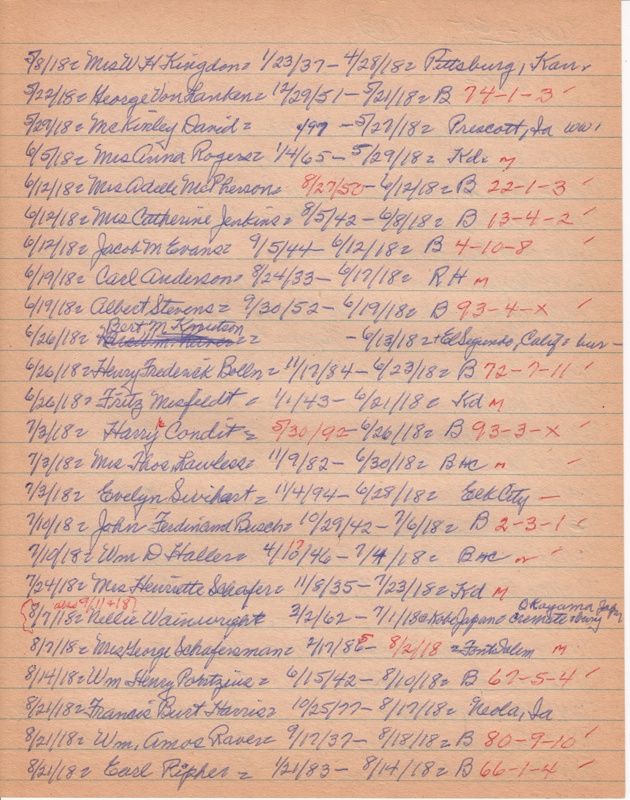 5/8/18= Mrs W H Kingdon= 1/23/37 - 4/28/18= Pittsburg, Kan.
5/22/18= George Von Hanken= 12/29/51 - 5/21/18= B 74-1-3 ✓
5/29/18= McKinley David= /97 - 5/27/18= Prescott, Ia WW1
6/5/18= Mrs Anna Rogers= 1/4/65 - 5/29/18= Kd= M
6/12/18= Mrs Adele McPherson= 8/27/50 - 6/12/18= B 22-1-3 ✓
6/12/18= Mrs Catherine Jenkins= 8/5/42 - 6/8/18= B 13-4-2 ✓
6/12/18= Jacob M Evans= 9/5/44 - 6/12/18= B 4-10-8 ✓
6/19/18= Carl Anderson= 8/24/33 - 6/17/18= RH M
6/19/18= Albert Stevens= 9/30/52 - 6/19/18= B 93-4-X ✓
6/26/18= Bert M Knutson= - 6/13/18=+El Segundo, Calif= bur -
6/26/18= Henry Frederick Bolln= 11/17/84 - 6/23/18= B 72-7-11 ✓
6/26/18= Fritz Misfeldt= 1/1/43 - 6/21/18= Kd M
7/3/18= Harry Condit= 5/30/92 - 6/26/18= B 93-3-X ✓
7/3/18= Mrs Thos Lawless= 11/9/82 - 6/30/18= BHC M ✓
7/3/18= Evelyn Sivihart= 11/4/94 - 6/28/18= Elk City -
7/10/18= John Ferdinand Busch= 10/29/42 - 7/6/18= B 2-3-1 ✓
7/10/18= Wm D Haller= 4/10/46 - 7/4/18= BHC ✓
7/24/18= Mrs Henriette Schafer= 11/8/35 - 7/23/18= Kd M
8/7/18= also 9/11/18 Nellie Wainwright 3/2/62 - 7/1/18= Kobe Japan=
8/7/18= Mrs George Schafersman= 2/17/85 - 8/2/18 = Font Salem M
8/14/18= Wm Henry Pontzius= 6/15/42 - 8/10/18= B 67-5-4 ✓
8/21/18= Francis Burt Harris= 10/25/77 - 8/17/18= Neola, Ia
8/21/18= Wm, Amos Raver= 9/17/37 - 8/18/18= B 80-9-10 ✓
8/21/18= Earl Ripher= 1/21/83 - 8/14/18= B 66-1-4 ✓